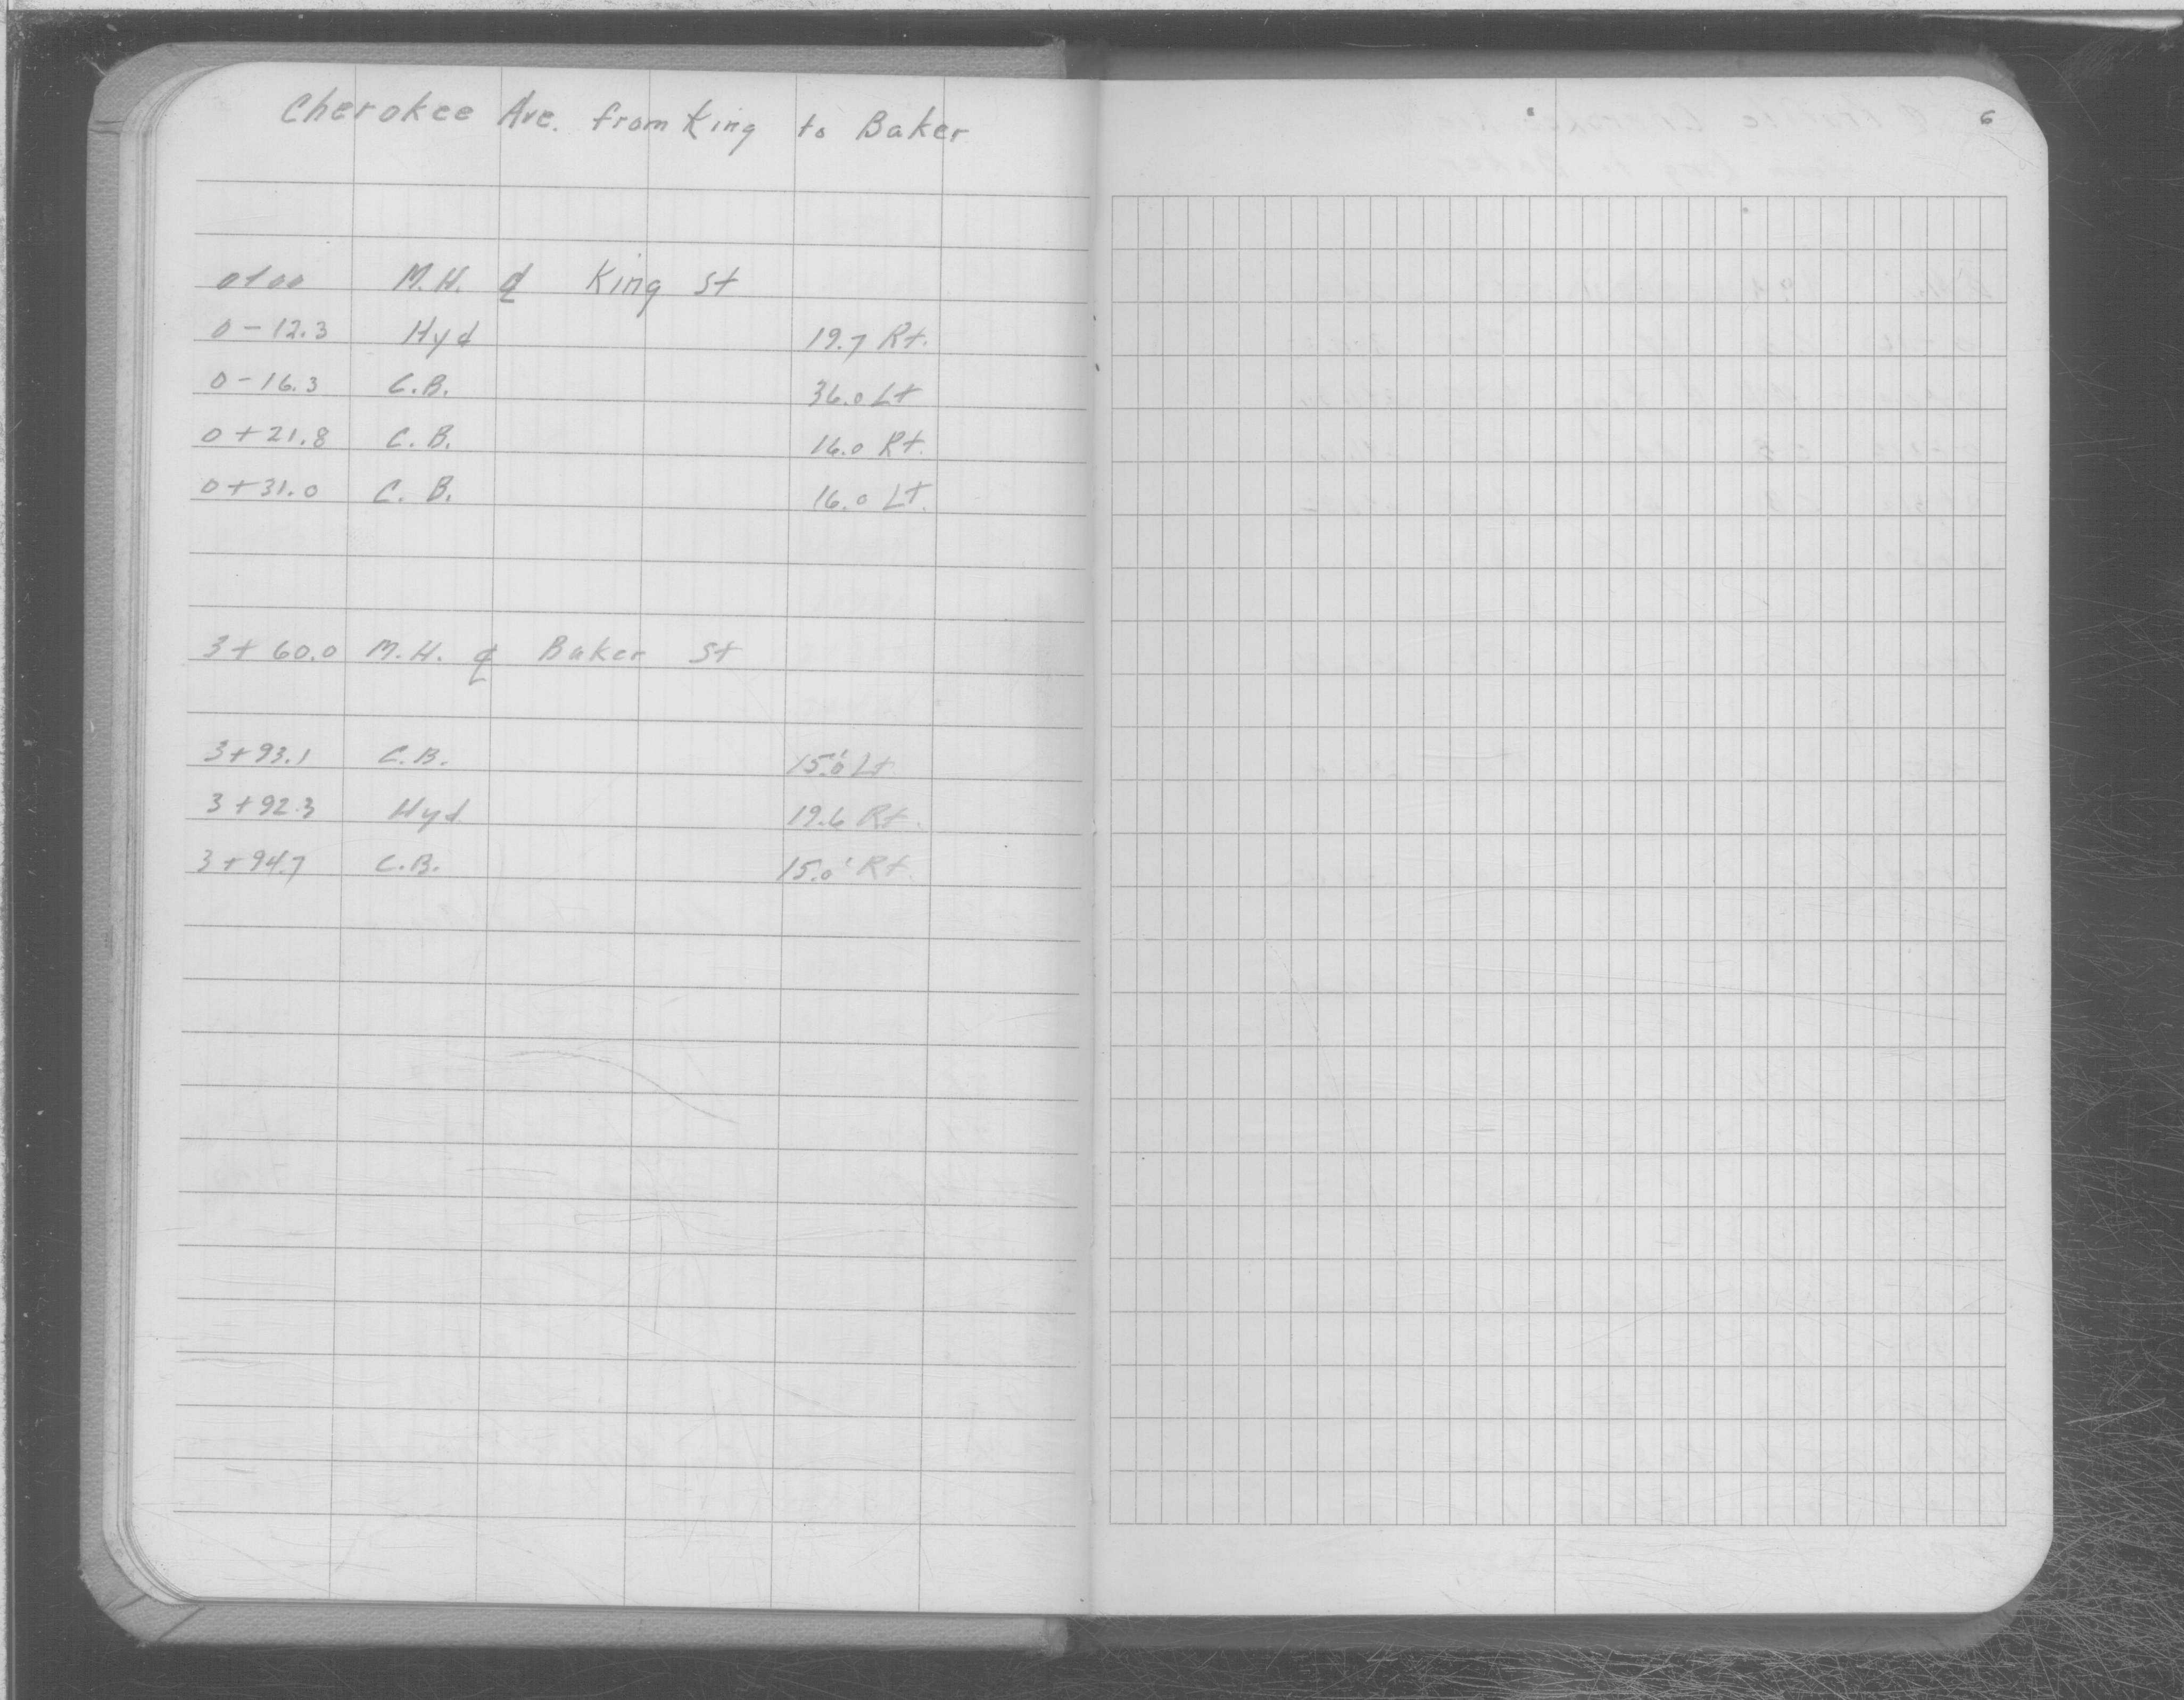 Cherokee Ave. from King to Baker
6
0+00 M.H. ₵ King St
0-12.3 Hyd 19.7 Rt.
0-16.3 C.B. 36.0 Lt
0+21.8 C.B. 16.0 Rt.
0+31.0 C.B. 16.0 Lt.
3+60.0 M.H. ₵ Baker St
3+93.1 C.B. 15.0' Lt
3+92.3 Hyd 19.6 Rt.
3+94.7 C.B. 15.0' Rt.